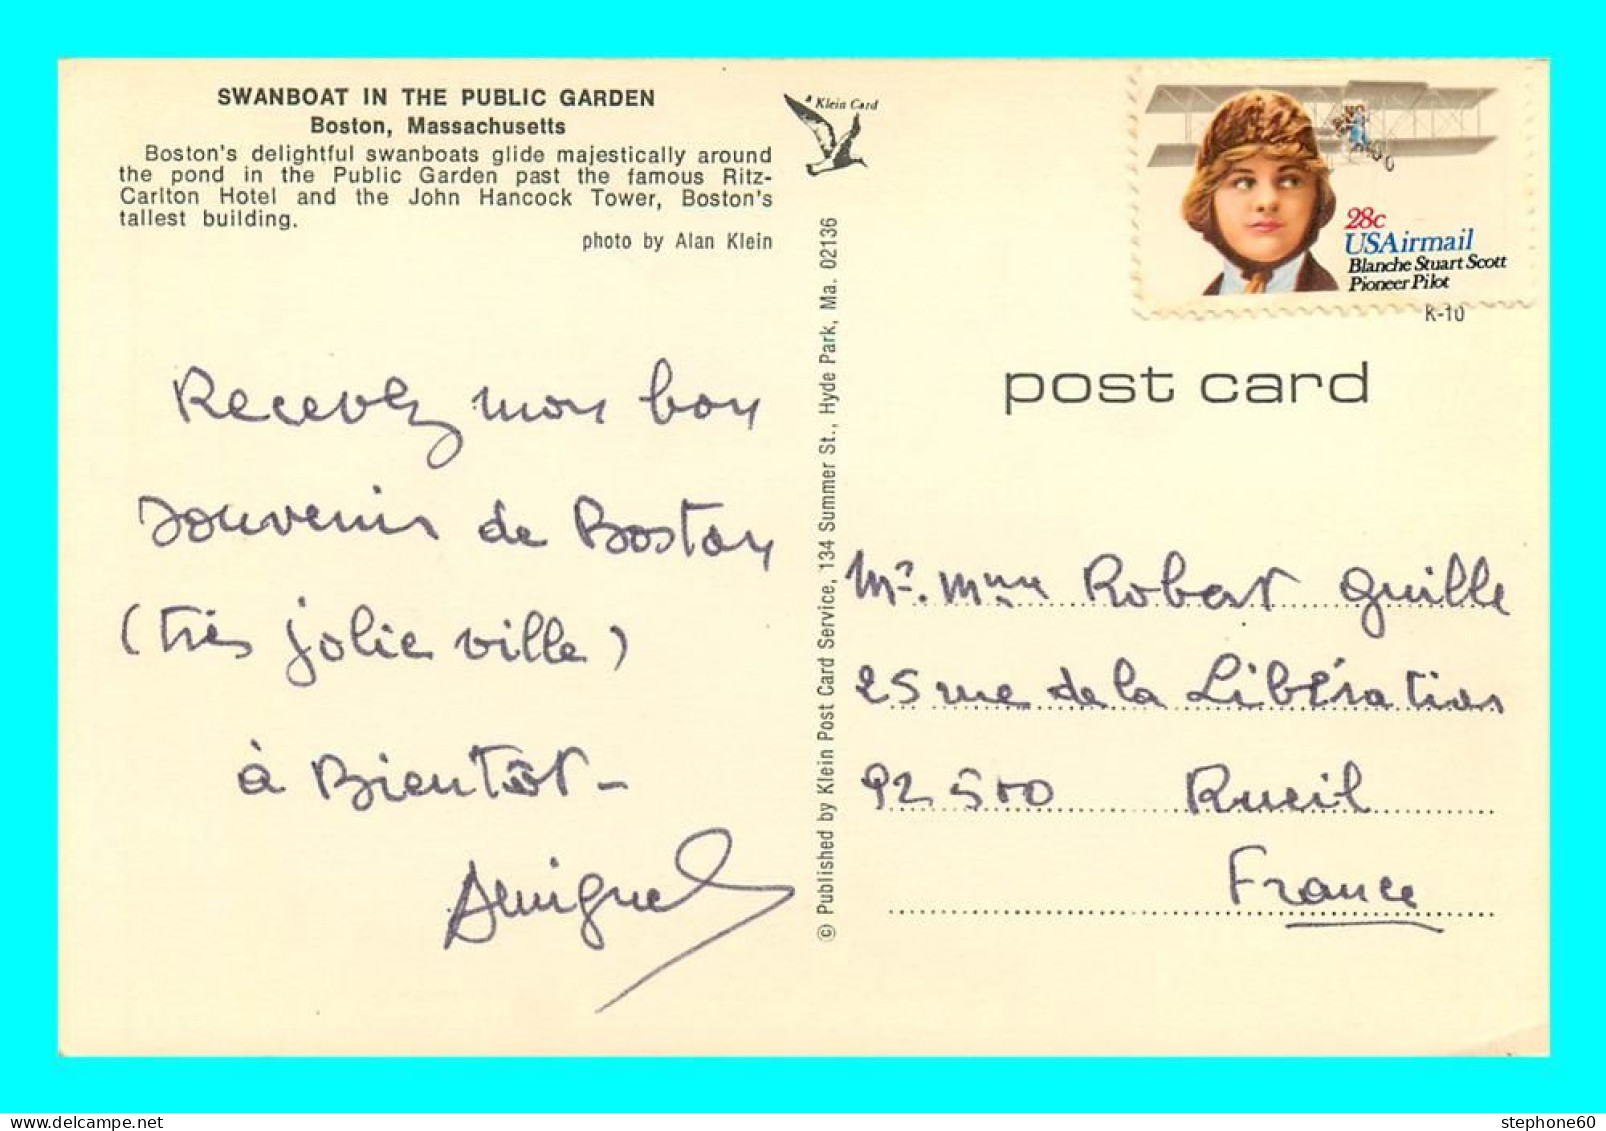 SWANBOAT IN THE PUBLIC GARDEN
Boston, Massachusetts
Boston's delightful swanboats glide majestically around
the pond in the Public Garden past the famous Ritz-
Carlton Hotel and the John Hancock Tower, Boston's
tallest building.
photo by Alan Klein
Klein Card
28c
USAirmail
Blanche Stuart Scott
Pioneer Pilot
K-10
post card
© Published by Klein Post Card Service, 134 Summer St., Hyde Park, Ma. 02136
Recevez mon bon
souvenir de Boston
(très jolie ville)
à Bientôt-
Mr. Mme Robert Guille
25 rue de la Libération
92500 Rueil
France
stephone60